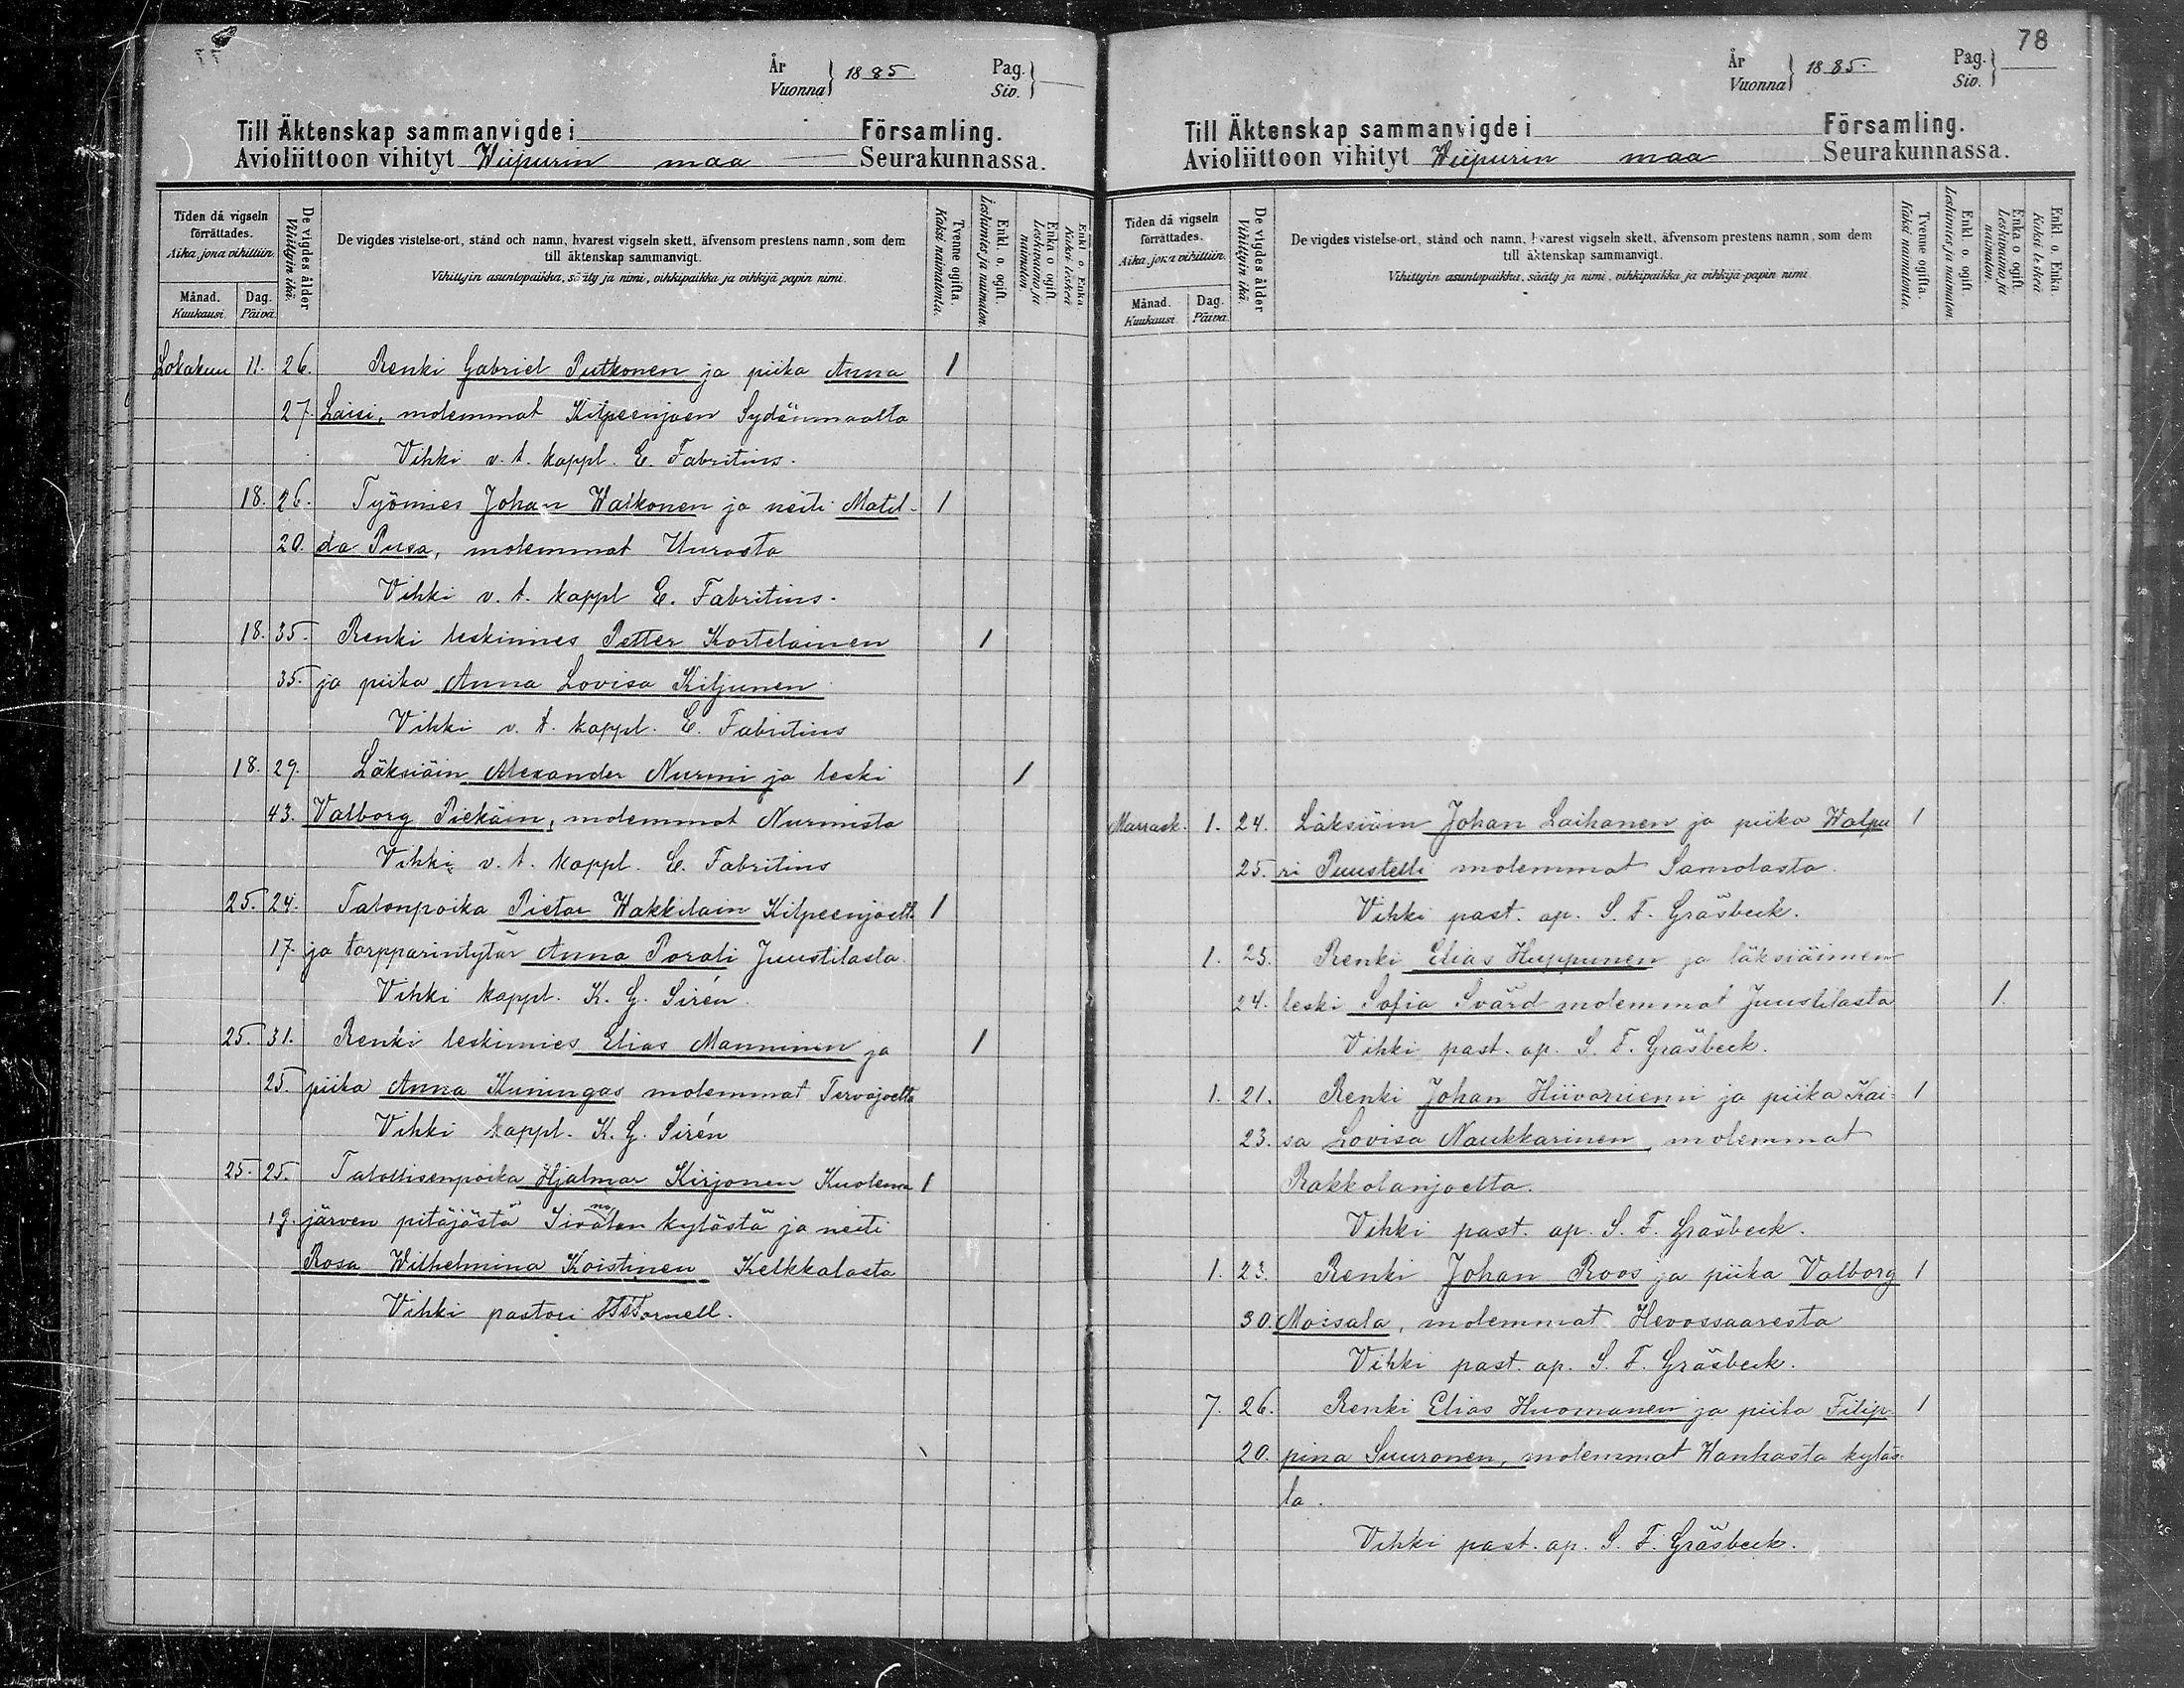 År
Vuonna
1885
Pag.
Siv.
Till Äktenskap sammanvigde i Församling.
Avioliittoon vihityt Wiipurin maa Seurakunnassa.
Tiden då vigseln förrättades.
Aika, jona vihittiin.
Månad.
Kuukausi.
Dag.
Päivä.
De vigdes ålder
Vihittyin ikä.
De vigdes vistelse-ort, stånd och namn, hvarest vigseln skett, äfvensom prestens namn, som dem
till äktenskap sammanvigt.
Vihittyin asuntopaikka, sääty ja nimi, vihkipaikka ja vihkijä papin nimi.
Tvenne ogifta.
Kaksi naimatonta.
Enkl. o. ogift.
Leskimies ja naimaton.
Enka o ogift
Leskivaimo ja naimaton.
Enkl. o. Enka.
Kaksi leskeä
Lokakuu 11. 26. Renki Gabriel Putkonen ja piika Anna 1
27. Laisi, molemmat Kilpeenjoen Sydänmaalta
Vihki v. t. kappl. E. Fabritius.
18. 26. Työmies Johan Walkonen ja neiti Matil- 1
20. da Pusa, molemmat Uurasta
Vihki v. t. kappl E. Fabritius.
18. 35. Renki leskimies Petter Kortelainen 1
35. ja piika Anna Lovisa Kiljunen
Vihki v. t. kappl. E. Fabritius
18. 29. Läksiäin Alexander Nurmi ja leski 1
43. Valborg Piekäin, molemmat Nurmista
Vihki v. t. kappl. E. Fabritius
25. 24. Talonpoika Pietar Wakkilain Kilpeenjoelt. 1
17. ja torpparintytär Anna Porali Juustilasta
Vihki kappl. K. G. Sirén.
25. 31. Renki leskimies Elias Manninen ja 1
25. piika Anna Kuningas molemmat Tervajoelta
Vihki kappl. K. G. Sirén
25. 25. Talollisenpoika Hjalmar Kirjonen Kuolema 1
19. järven pitäjästä kylästä ja neiti
Rosa Wilhelmina Koistinen Kelkkalasta
Vihki pastori
78
År
Vuonna
1885.
Pag.
Siv.
Till Äktenskap sammanvigde i Församling.
Avioliittoon vihityt Wiipurin maa Seurakunnassa.
Tiden då vigseln förrättades.
Aika, jona vihittiin.
Månad.
Kuukausi
Dag.
Päivä.
De vigdes ålder
Vihittyin ikä.
De vigdes vistelse-ort, stånd och namn, hvarest vigseln skett, äfvensom prestens namn, som dem
till äktenskap sammanvigt.
Vihittyin asuntopaikka, sääty ja nimi, vihkipaikka ja vihkijä papin nimi
Tvenne ogifta.
Kaksi naimatonta.
Enkl. o. ogift.
Leskimies ja naimaton.
Enka o ogift
Leskivaimo ja naimaton.
Enkl. o. Enka.
Kaksi leskeä
Marrask. 1. 24. Läksiäin Johan Laihanen ja piika Walpu 1
25. ri Puustelli molemmat Samolasta.
Vihki past. ap. S. F. Gräsbeck.
1. 25. Renki Elias Huppunen ja läksiäimen
24. leski Sofia Svärd molemmat Juustilasta 1.
Vihki past. ap. S. F. Gräsbeck.
1. 21. Renki Johan Hiivaniemi ja piika Kai- 1
23. sa Lovisa Naukkarinen, molemmat
Rakkolanjoelta.
Vihki past. ap. S. F. Gräsbeck.
1. 23. Renki Johan Roos ja piika Valborg 1
30. Moisala, molemmat Hevossaaresta
Vihki past. ap. S. F. Gräsbeck.
7. 26. Renki Elias Huomanen ja piika Filip- 1
20. pina Suuronen, molemmat Wanhasta kyläs-
ta.
Vihki past. ap. S. F. Gräsbeck.